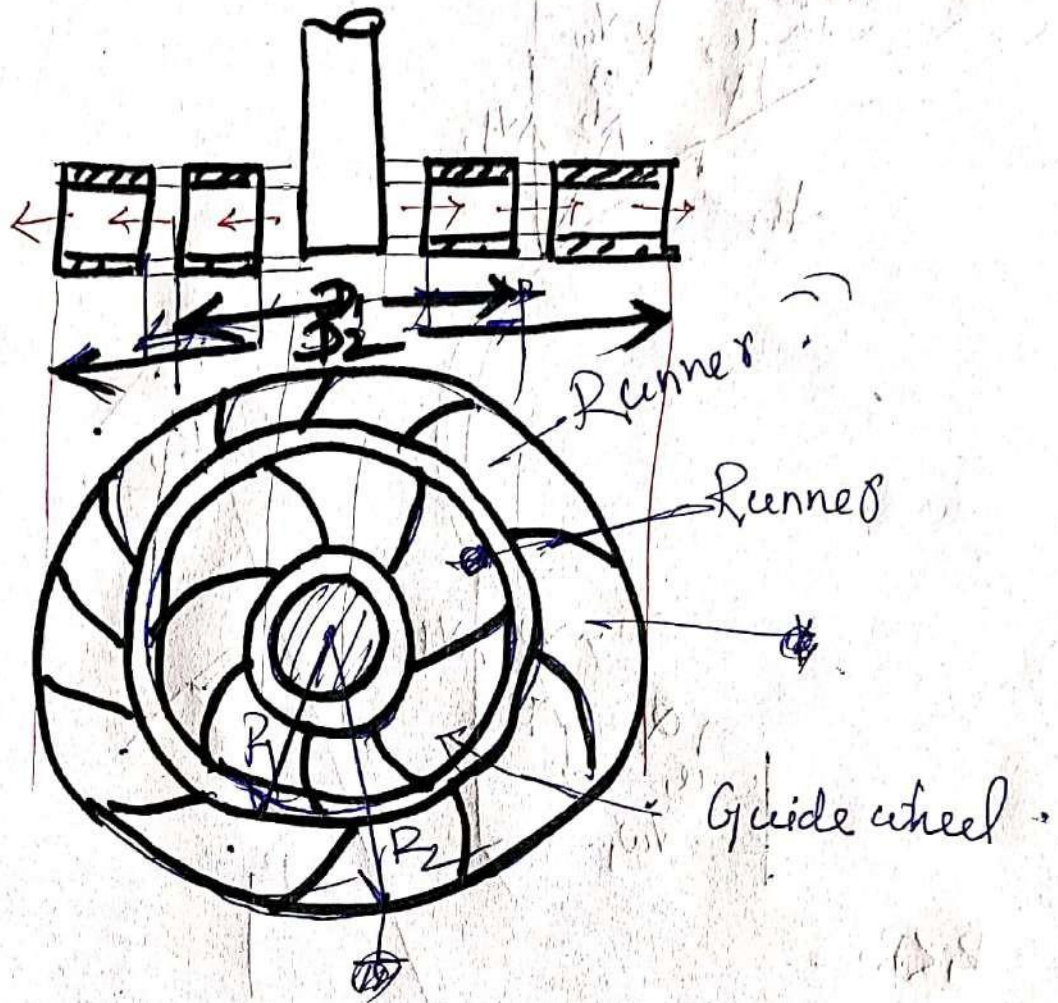 D1
D2
Runner
Runner
R1
Guide wheel
R2